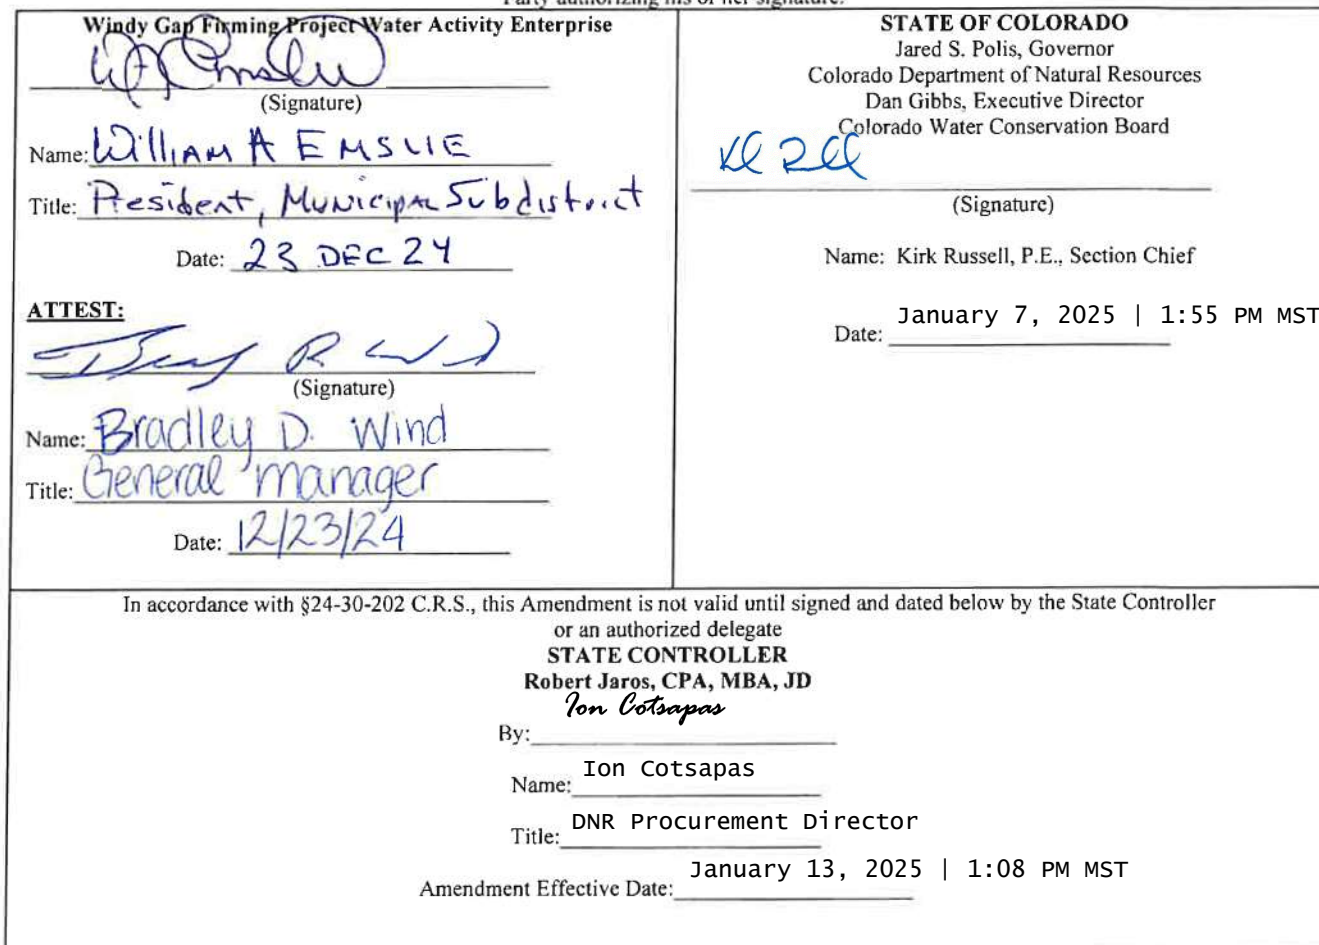 Party authorizing his or her signature.
Windy Gap Firming Project Water Activity Enterprise
(Signature)
Name: William A Emslie
Title: President, Municipal Subdistrict
Date: 23 DEC 24
ATTEST:
(Signature)
Name: Bradley D. Wind
Title: General manager
Date: 12/23/24
STATE OF COLORADO
Jared S. Polis, Governor
Colorado Department of Natural Resources
Dan Gibbs, Executive Director
Colorado Water Conservation Board
(Signature)
Name: Kirk Russell, P.E., Section Chief
Date: January 7, 2025 | 1:55 PM MST
In accordance with §24-30-202 C.R.S., this Amendment is not valid until signed and dated below by the State Controller
or an authorized delegate
STATE CONTROLLER
Robert Jaros, CPA, MBA, JD
Ion Cotsapas
By:
Name: Ion Cotsapas
Title: DNR Procurement Director
Amendment Effective Date: January 13, 2025 | 1:08 PM MST